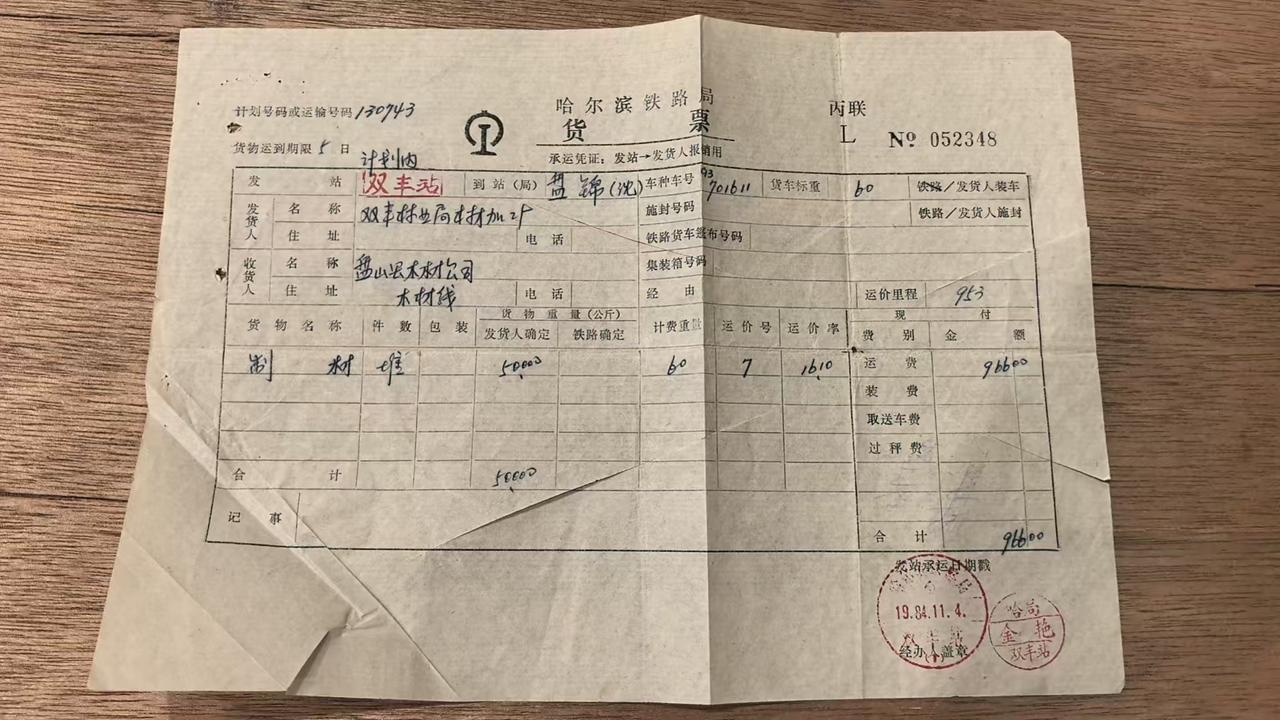 哈尔滨铁路局
丙联
计划号码或运输号码 130743
货票
L № 052348
货物运到期限 5 日
计划内
承运凭证：发站→发货人报销用
发站 双丰站 到站（局） 盘锦（沈） 车种车号 93 701611 货车标重 60 铁路／发货人装车
发货人 名称 双丰林业局木材加工厂 施封号码 铁路／发货人施封
住址 电话 铁路货车篷布号码
收货人 名称 盘山县木材公司 集装箱号码
住址 木材线 电话 经由 运价里程 953
货物名称 件数 包装 货物重量（公斤） 计费重量 运价号 运价率 现付
发货人确定 铁路确定 费别 金额
制材 堆 50000 60 7 1610 运费 96600
装费
取送车费
过秤费
合计 50000
记事
合计 96600
发站承运日期戳
19.84.11.4.
双丰站
经办人盖章
哈局
金艳
双丰站